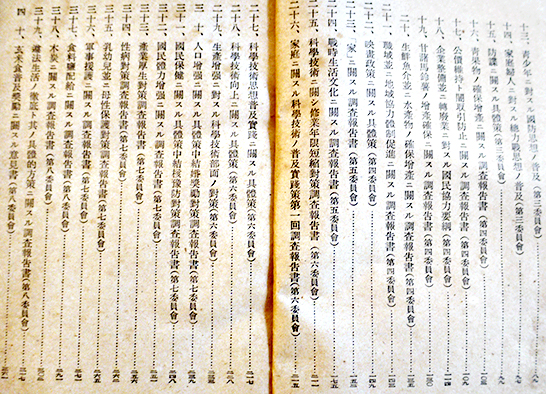 十三、青少年ニ對スル國防思想ノ普及(第三委員會)
十四、家庭婦人ニ對スル總力戰思想ノ普及(第三委員會)
十五、防諜ニ關スル調査報告書(第四委員會)
十六、青果物ノ確保增產ニ關スル調査報告書(第四委員會)
十七、公債維持ト闇取引防止ニ關スル調査報告書(第四委員會)
十八、企業整備並ニ轉廢業ニ對スル國民協力要綱(第四委員會)
十九、甘藷馬鈴薯ノ增產確保ニ關スル調査報告書(第四委員會)
二十、生鮮魚介並ニ水產物ノ確保增產ニ關スル調査報告書(第四委員會)
二十一、職域並ニ地域協力體制促進ニ關スル調査報告書(第四委員會)
二十二、映畫政策ニ關スル具體策(第四委員會)
二十三、「家」ニ關スル調査報告書(第五委員會)
二十四、戰時生活文化ニ關スル調査報告書(第五委員會)
二十五、科學技術ニ關シ修業年限短縮對策調査報告書(第六委員會)
二十六、家庭ニ關スル科學技術ノ普及實踐策第一回調査報告書(第六委員會)
二十七、科學技術思想普及實踐ニ關スル具體策(第六委員會)
二十八、科學技術向上ニ關スル具體策(第六委員會)
二十九、生產增强ニ對スル科學技術面ノ對策(第六委員會)
三十、人口增强ニ關スル具體策中結婚獎勵對策調査報告書(第七委員會)
三十一、國民保健ニ關スル具體策中結核豫防對策調査報告書(第七委員會)
三十二、國民體力增强ニ關スル調査報告書(第七委員會)
三十三、產業厚生對策調査報告書(第七委員會)
三十四、性病對策調査報告書(第七委員會)
三十五、乳幼兒並ニ母性保護對策調査報告書(第七委員會)
三十六、軍事援護ニ關スル調査報告書(第七委員會)
三十七、食料品配給ニ關スル調査報告書(第八委員會)
三十八、木炭ニ關スル調査報告書(第八委員會)
三十九、遵法生活ノ徹底ト其ノ具體的方策ニ關スル調査報告書(第八委員會)
四十、玄米食普及獎勵ニ關スル意見書(第八委員會)